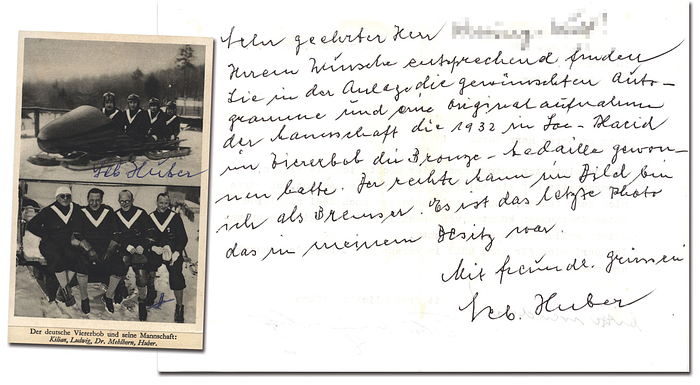 Seb Huber
Der deutsche Viererbob und seine Mannschaft:
Kilian, Ludwig, Dr. Mehlhorn, Huber.
Sehr geehrter Herr
Ihrem Wunsche entsprechend finden
Sie in der Anlage die gewünschten Auto-
gramme und eine Originalaufnahme
der Mannschaft die 1932 in Lac-Placid
im Viererbob die Bronze-Medaille gewon-
nen hatte. Der rechte Mann im Bild bin
ich als Bremser. Es ist das letzte Photo
das in meinem Besitz war.
Mit freundl. Grüssen
Seb. Huber